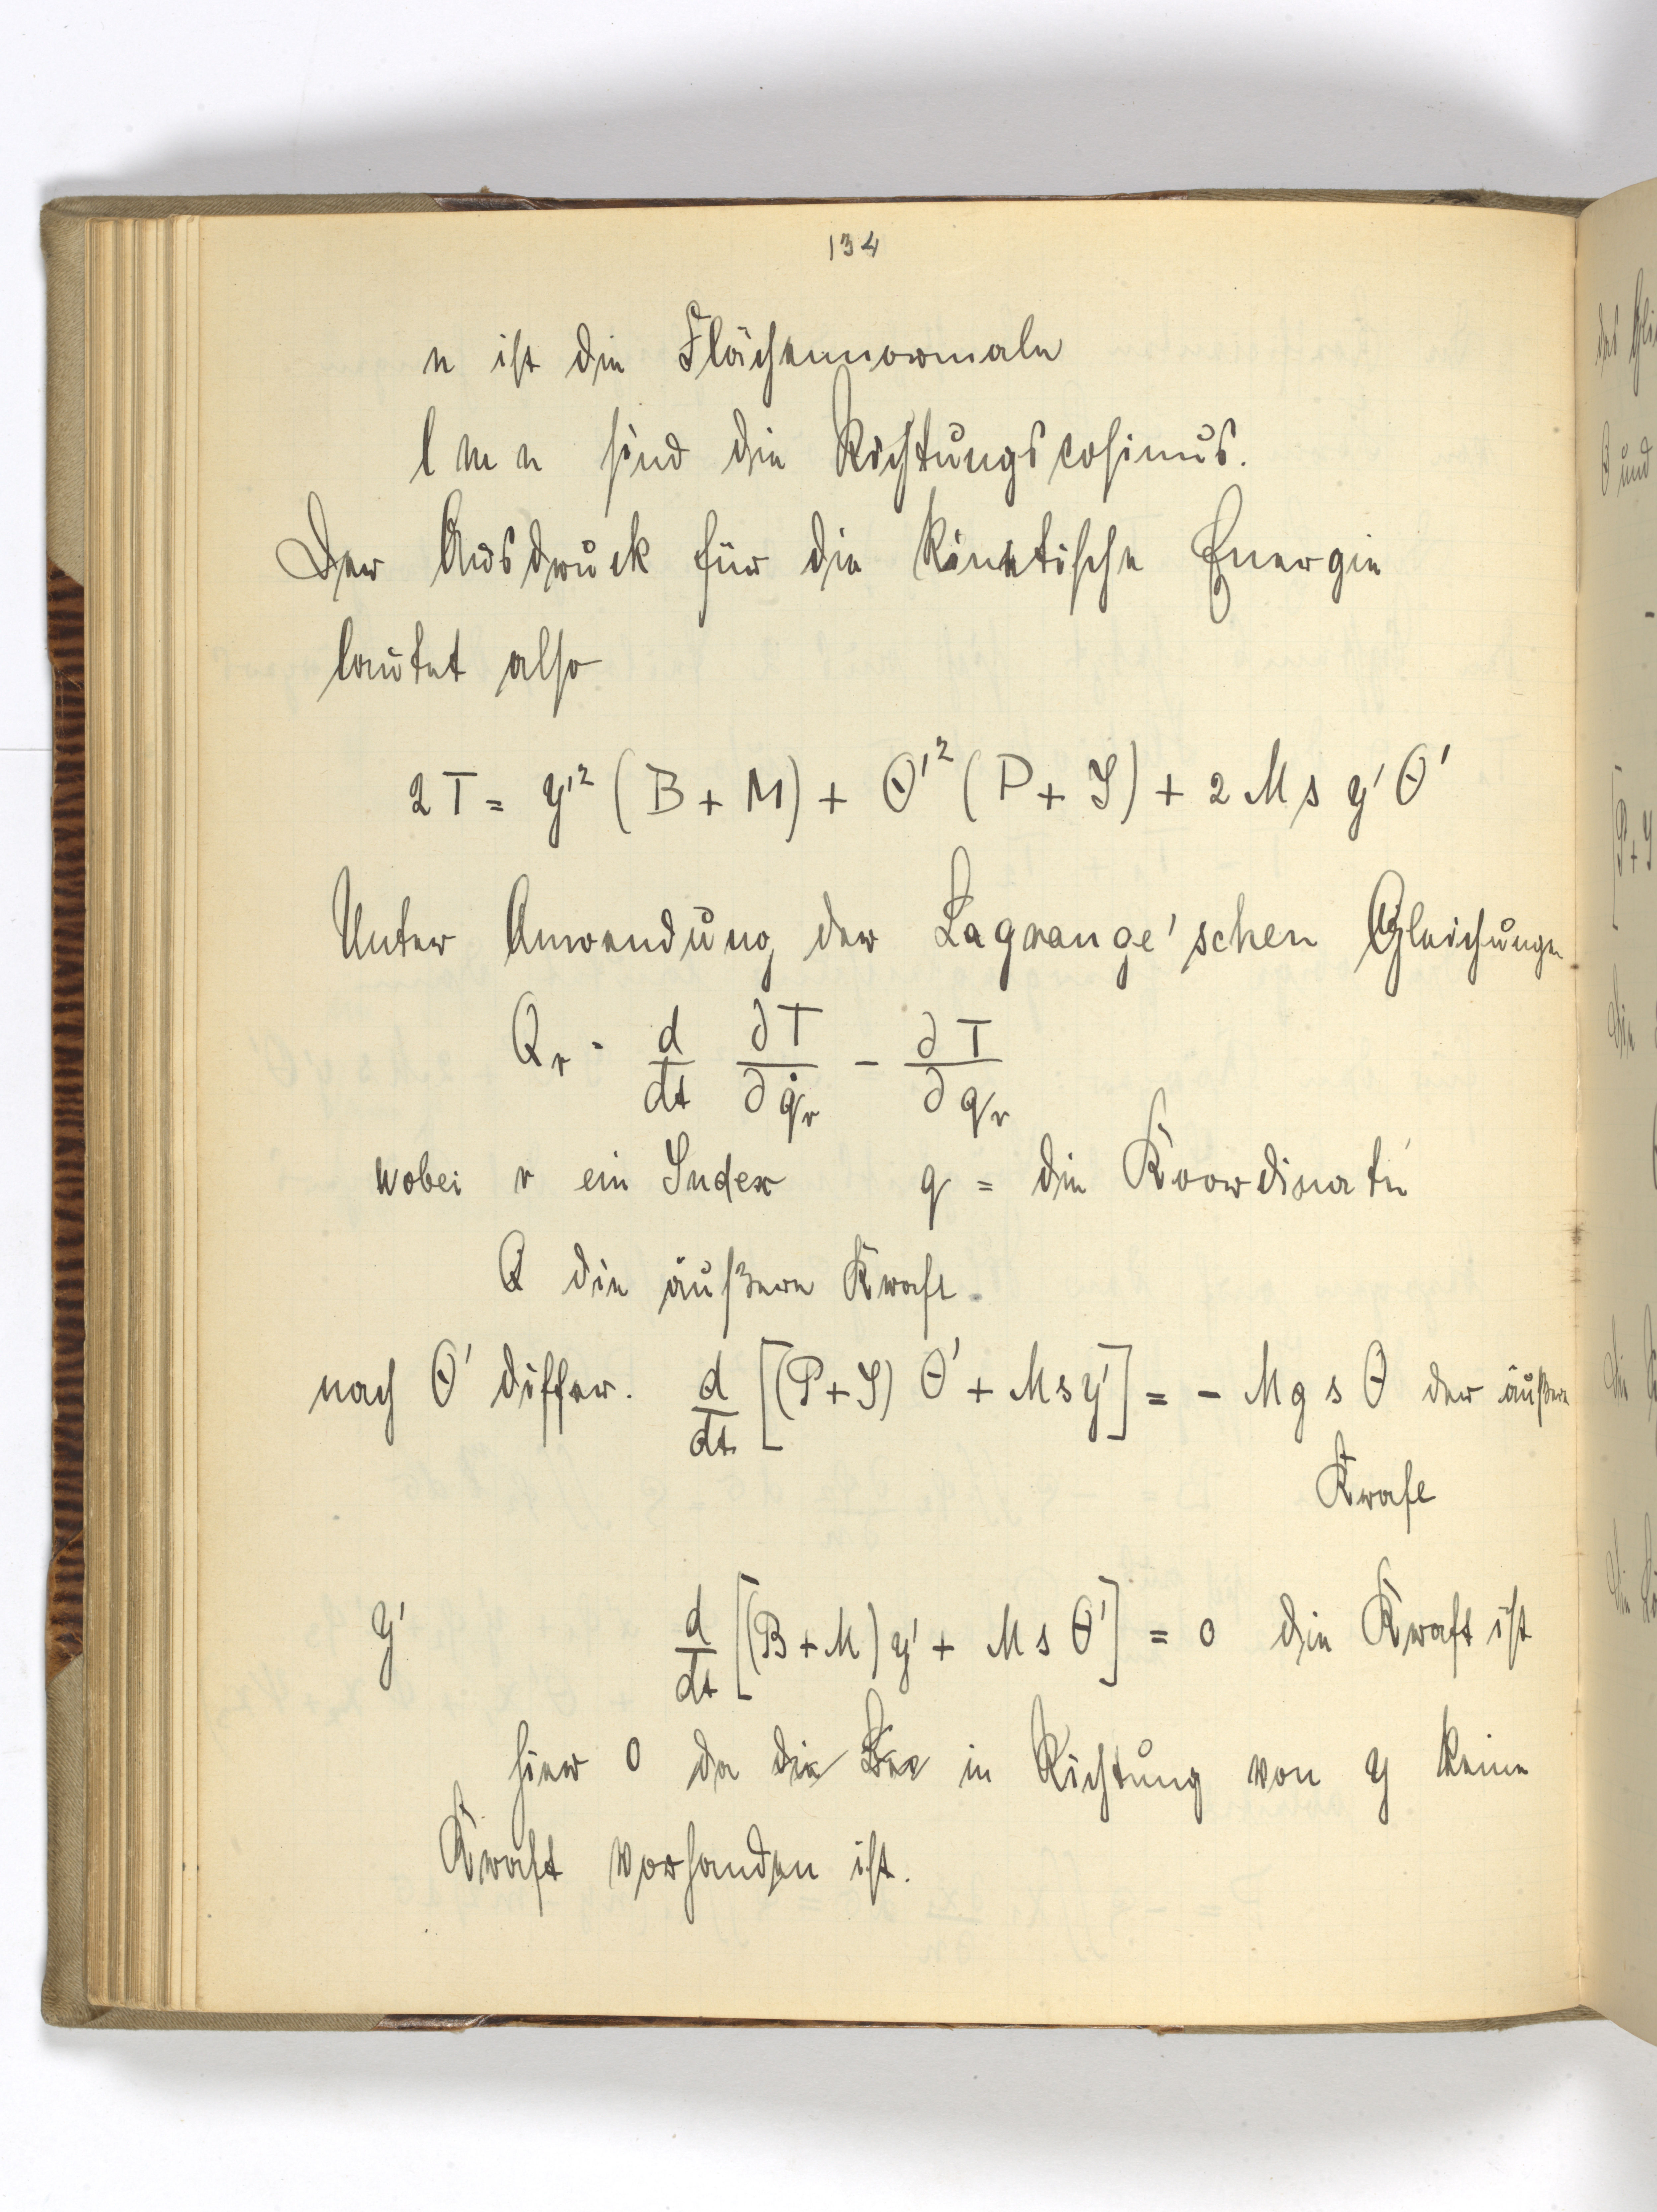 134
n ist die Flächennormale
l m n sind die Richtungscosinus.
Der Ausdruck für die kinetische Energie
lautet also
2T = y'² (B + M) + Θ'² (P + J) + 2 M s y' Θ'
Unter Anwendung der Lagrange'schen Gleichungen
Q_r = d/dt ∂T/∂q̇_r − ∂T/∂q_r
wobei r ein Index q = die Koordinate
Q die äußere Kraft.
nach Θ' differ. d/dt [(P+J) Θ' + M s y'] = − M g s Θ der äußere
Kraft
y' d/dt [(B + M) y' + M s Θ'] = 0 die Kraft ist
hier 0 da die in Richtung von y keine
Kraft vorhanden ist.
des
Θ und
[P+J
die
die
die